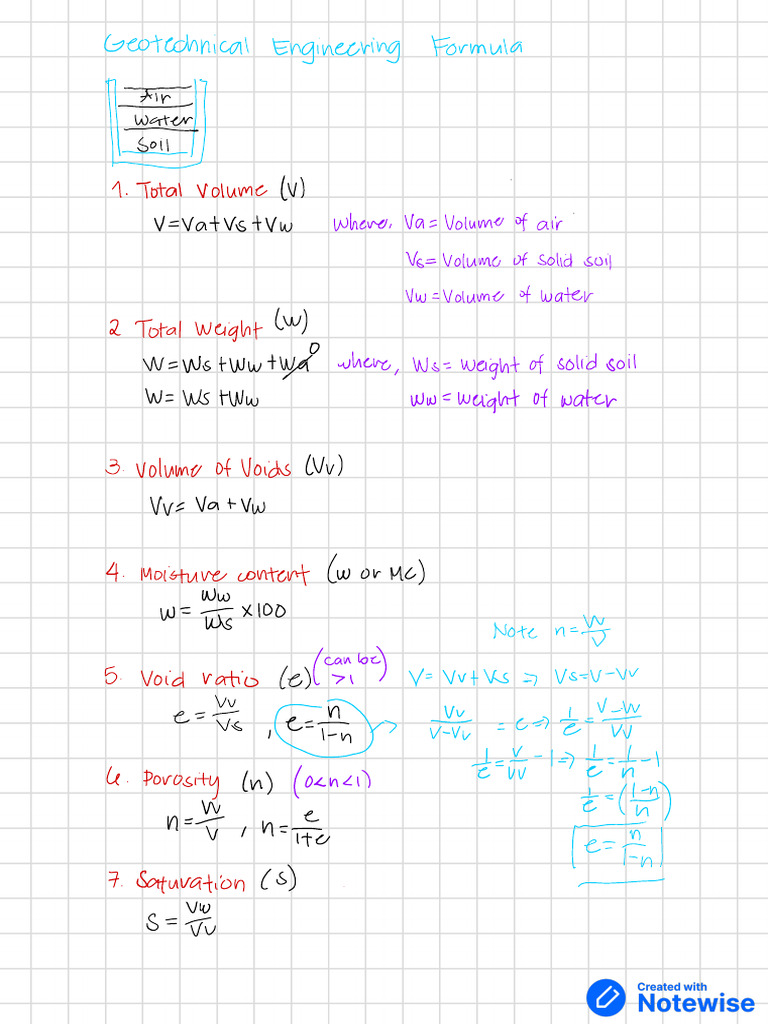 Geotechnical Engineering Formula
Air
Water
Soil
1. Total Volume (V)
V = Va + Vs + Vw where, Va = Volume of air
Vs = Volume of solid soil
Vw = Volume of water
2 Total Weight (W)
W = Ws + Ww + Wa 0 where, Ws = weight of solid soil
W = Ws + Ww Ww = weight of water
3. Volume of Voids (Vv)
Vv = Va + Vw
4. Moisture content (w or MC)
w = Ww/Ws x 100
Note n = Vv/V
5. Void ratio (e) (can be >1)
e = Vv/Vs , e = n/1-n
V = Vv + Vs => Vs = V - Vv
Vv/V-Vv = e => 1/e = V-Vv/Vv
1/e = V/Vv - 1 => 1/e = 1/n - 1
1/e = (1-n/n)
e = n/1-n
6. Porosity (n) (0<n<1)
n = Vv/V , n = e/1+e
7. Saturation (S)
S = Vw/Vv
Created with
Notewise